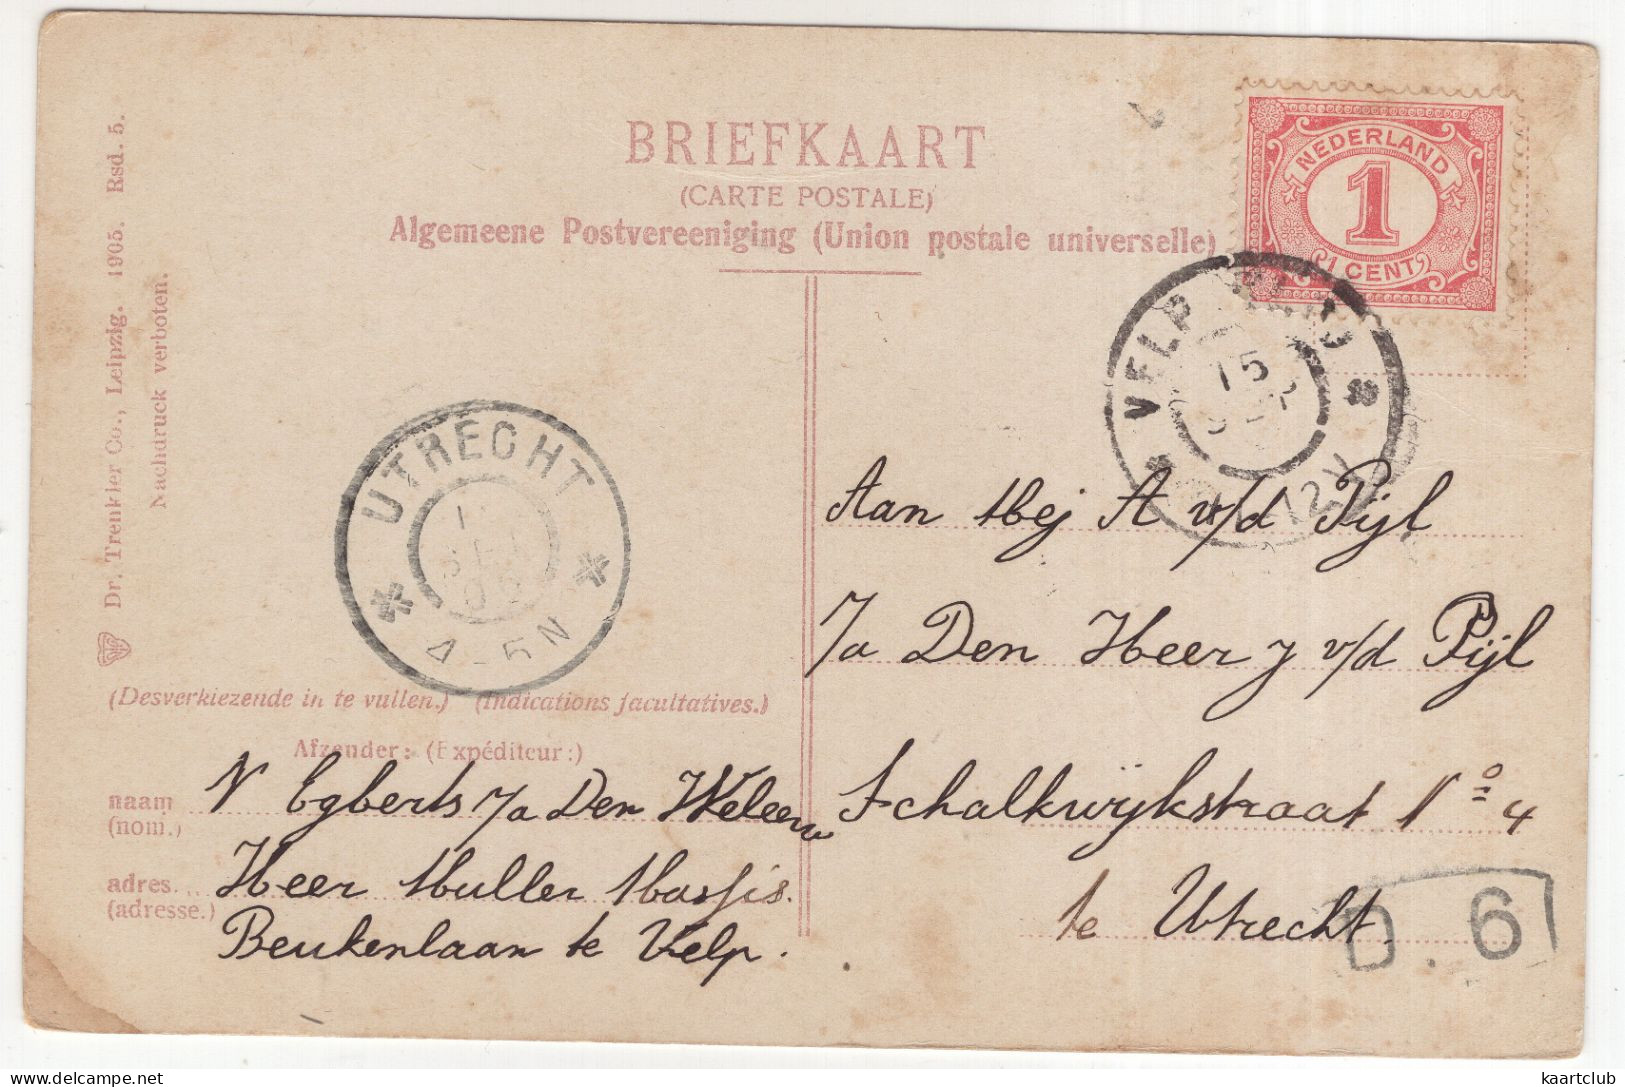 BRIEFKAART
(CARTE POSTALE)
Algemeene Postvereeniging (Union postale universelle)
NEDERLAND
1
1 CENT
VELP
15
UTRECHT
4-5N
Dr. Trenkler Co., Leipzig. 1905. Rsd. 5.
Nachdruck verboten.
Aan Mej A v/d Pijl
p/a Den Heer J v/d Pijl
Schalkwijkstraat No 4
te Utrecht.
D. 6
(Desverkiezende in te vullen.) (Indications facultatives.)
Afzender: (Expéditeur:)
naam
(nom.)
N Egberts p/a Den Weleerw
adres
(adresse.)
Heer Muller Massis.
Beukenlaan te Velp.
delcampe.net
kaartclub